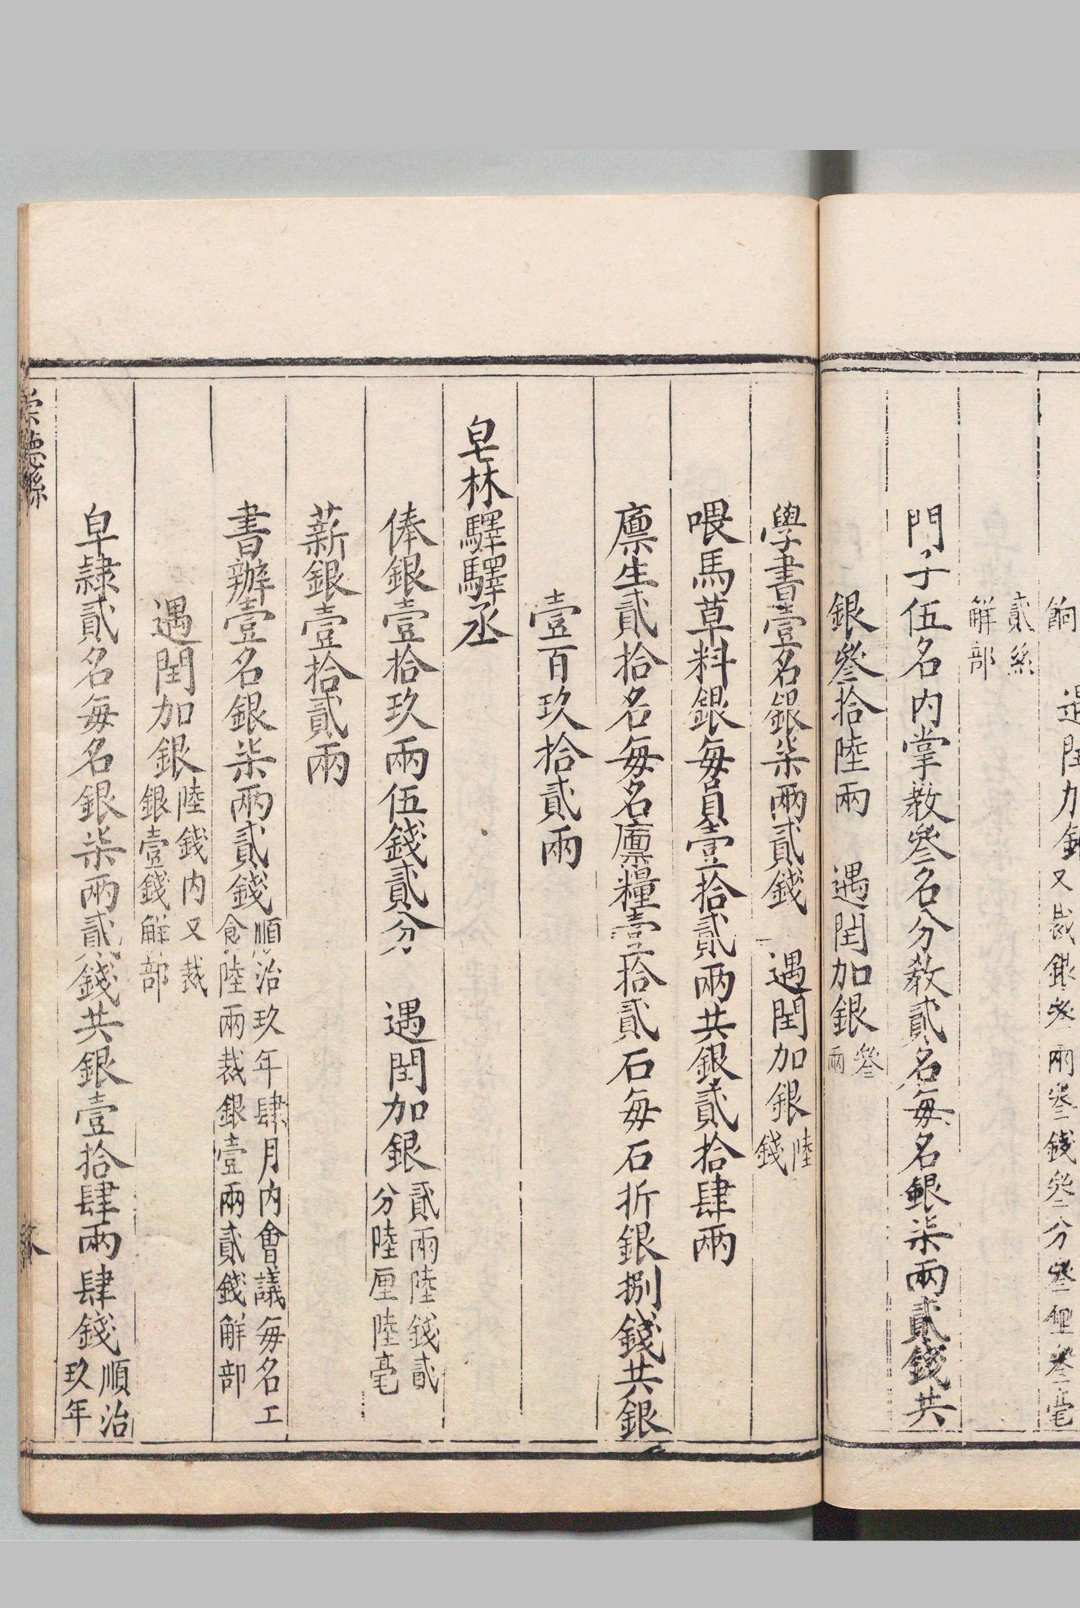 遇閏加銀又裁銀叄兩叄錢叄分叄釐叄毫
貳絲
解部
門子伍名內掌教叄名分教貳名每名銀柒兩貳錢共
銀叄拾陸兩　遇閏加銀叄兩
學書壹名銀柒兩貳錢　遇閏加銀陸錢
喂馬草料銀每員壹拾貳兩共銀貳拾肆兩
廪生貳拾名每名廪糧壹拾貳石每石折銀捌錢共銀
壹百玖拾貳兩
皂林驛驛丞
俸銀壹拾玖兩伍錢貳分　遇閏加銀貳兩陸錢貳分陸厘陸毫
薪銀壹拾貳兩
書辦壹名銀柒兩貳錢順治玖年肆月內會議每名工食陸兩裁銀壹兩貳錢解部
遇閏加銀陸錢內又裁銀壹錢解部
皁隸貳名每名銀柒兩貳錢共銀壹拾肆兩肆錢順治玖年
崇德縣